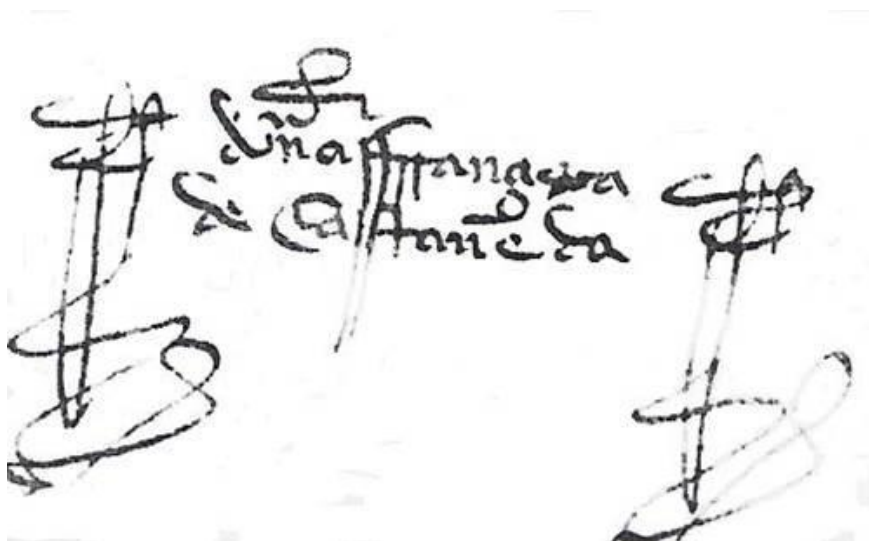 doña ffrançisca
de Castañeda